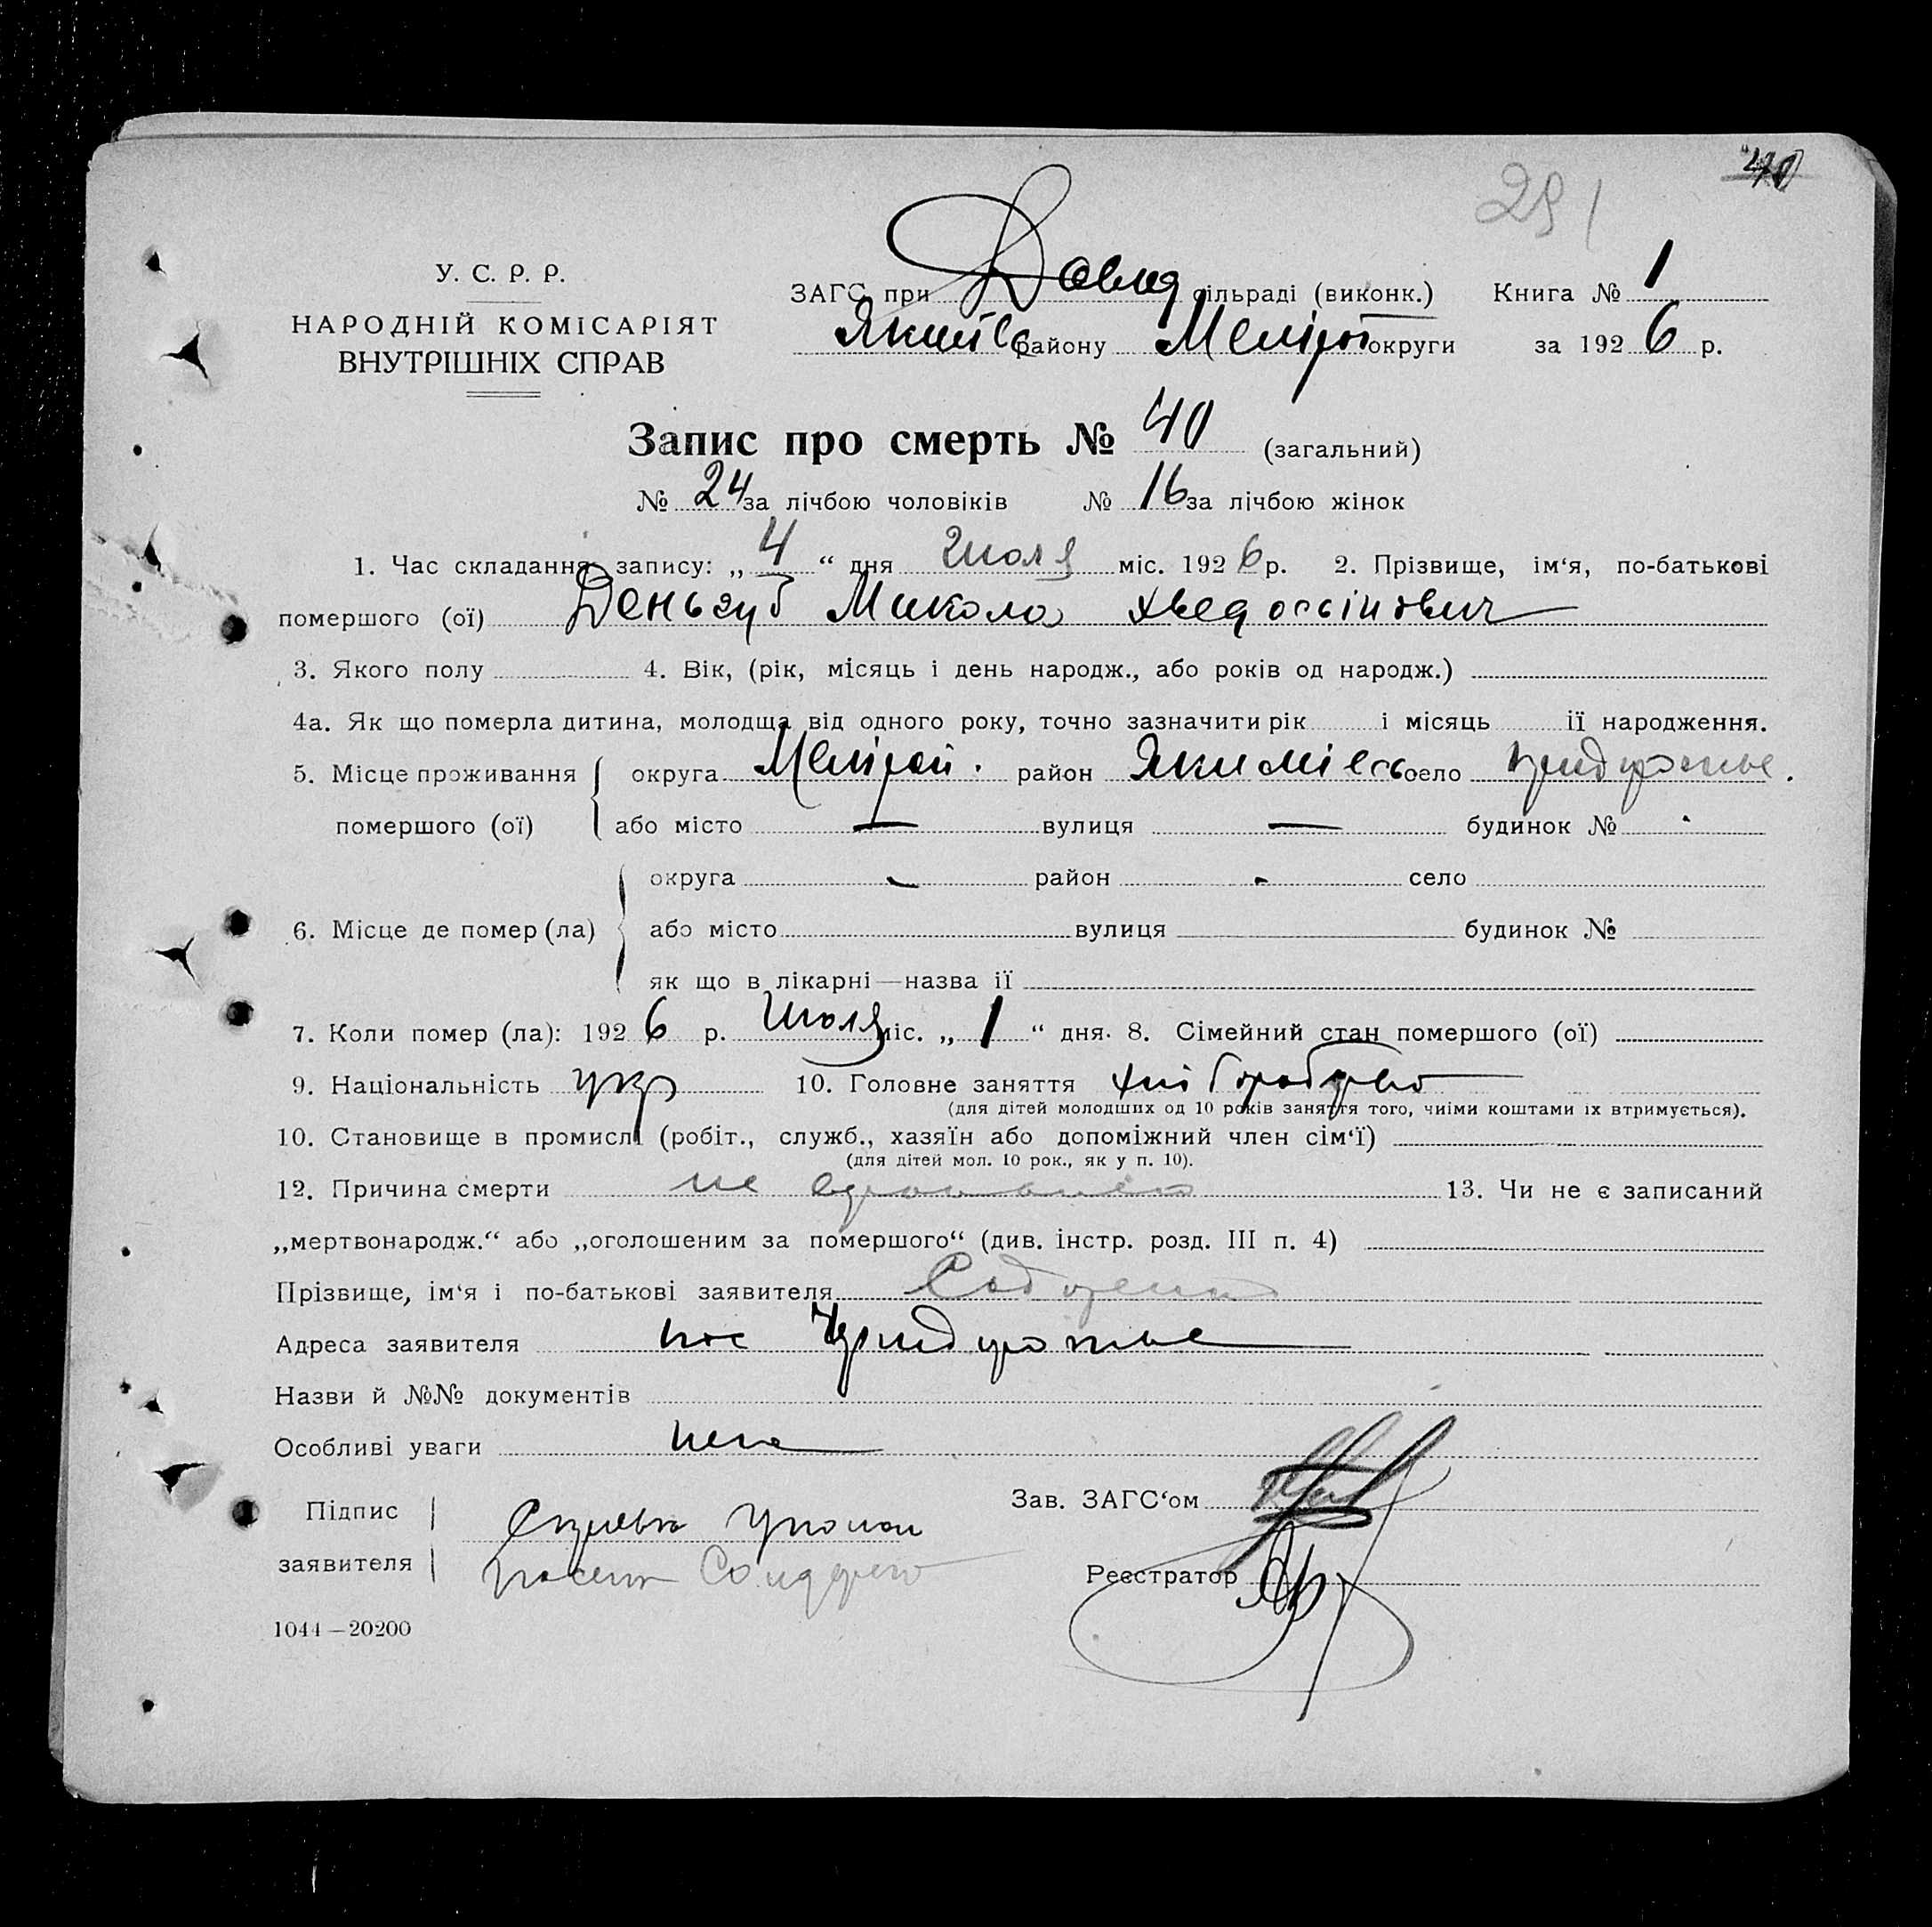 40
291
У. С. Р. Р.
НАРОДНІЙ КОМІСАРІЯТ
ВНУТРІШНІХ СПРАВ
ЗАГС при Давид сільраді (виконк.) Книга № 1
району Меліт округи за 1926 р.
Запис про смерть № 40 (загальний)
№ 24 за лічбою чоловіків № 16 за лічбою жінок
1. Час складання запису: „4“ дня Июля міс. 1926 р. 2. Прізвище, ім‘я, по-батькові
помершого (ої) Деньгуб Микола
3. Якого полу 4. Вік, (рік, місяць і день народж., або років од народж.)
4а. Як що померла дитина, молодща від одного року, точно зазначити рік і місяць її народження.
5. Місце проживання округа район село
помершого (ої) або місто — вулиця — будинок №
округа - район - село
6. Місце де помер (ла) або місто вулиця будинок №
як що в лікарні—назва її
7. Коли помер (ла): 1926 р. Июля міс. „1“ дня. 8. Сімейний стан помершого (ої)
9. Національність укр 10. Головне заняття
(для дітей молодших од 10 років заняття того, чиїми коштами їх втримується).
10. Становище в промислі (робіт., служб., хазяїн або допоміжний член сім‘ї)
(для дітей мол. 10 рок., як у п. 10).
12. Причина смерти не 13. Чи не є записаний
„мертвонародж.“ або „оголошеним за помершого“ (див. інстр. розд. III п. 4)
Прізвище, ім‘я і по-батькові заявителя
Адреса заявителя пос
Назви й №№ документів
Особливі уваги нема
Підпис
Зав. ЗАГС‘ом
заявителя
Реєстратор
1044—20200